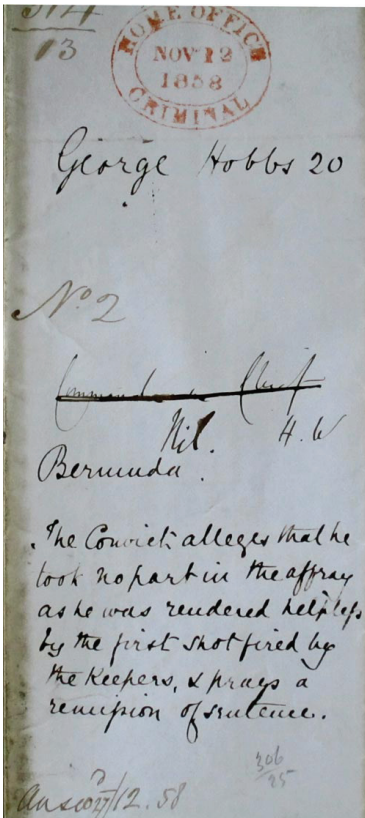 314
13
HOME OFFICE
NOV 12
1858
CRIMINAL
George Hobbs 20
No 2
Commander in Chief
Nil. H. W
Bermuda.
The Convict alleges that he
took no part in the affray
as he was rendered helpless
by the first shot fired by
the Keepers, & prays a
remission of sentence.
306
25
/12.58